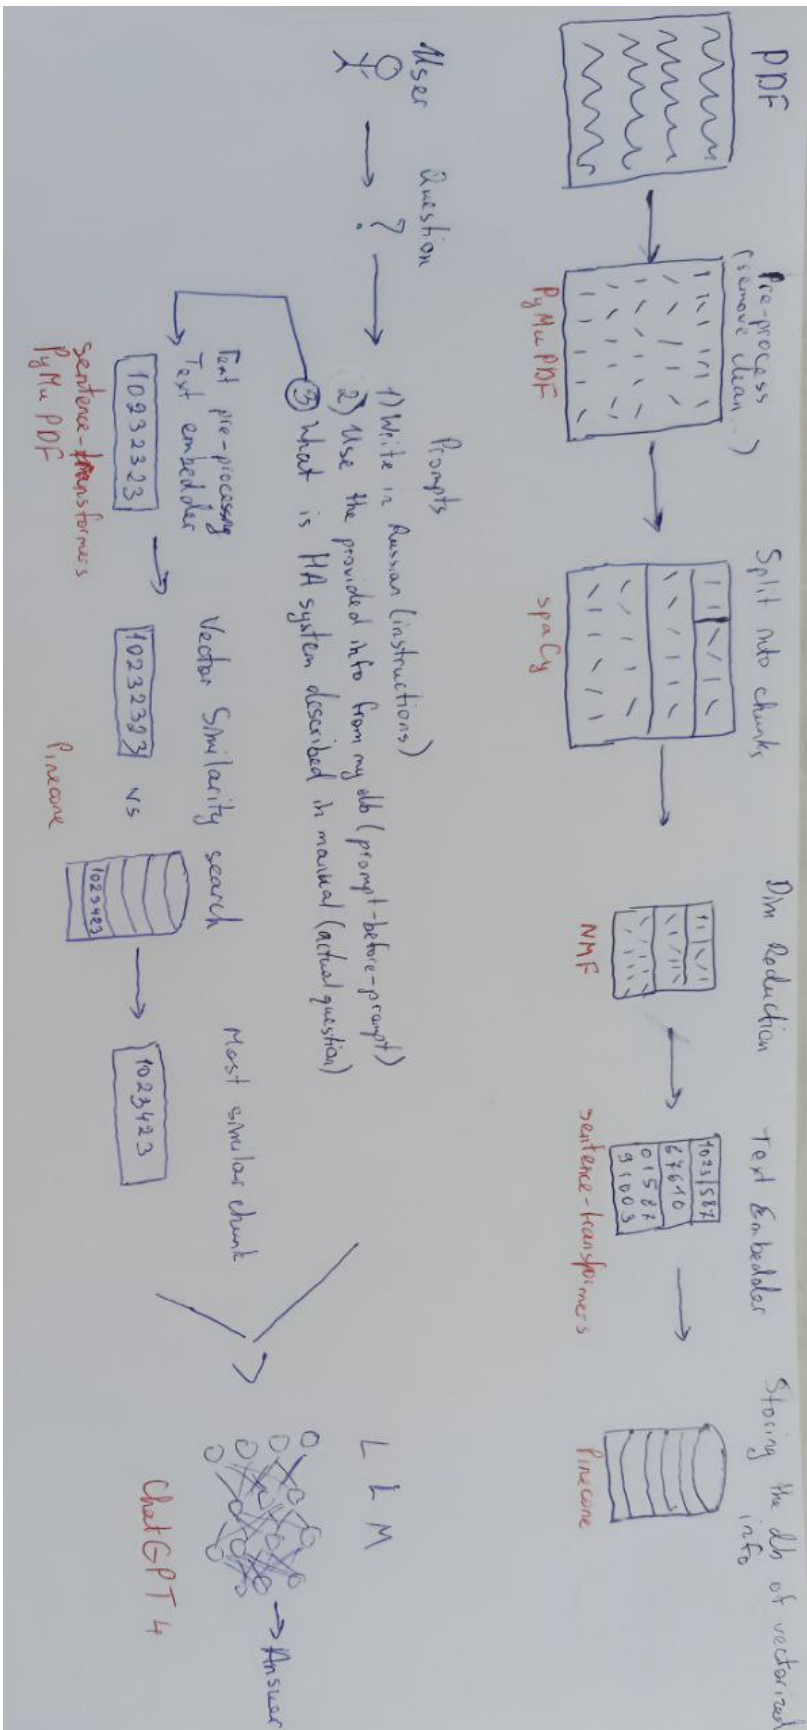 PDF
Pre-process
(remove clean...)
PyMuPDF
Split into chunks
spaCy
Dim Reduction
NMF
Text Embedder
1023/587
67610
01587
91003
sentence-transformers
Storing the db of vectorized
info
Pinecone
User
Question
?
Prompts
1) Write in Russian (instructions)
2) Use the provided info from my db (prompt-before-prompt)
3) What is HA system described in manual (actual question)
Text pre-processing
Text embedder
10232323
sentence-transformers
PyMu PDF
Vector Similarity search
10232323 vs
1023423
Pinecone
Most similar chunk
1023423
LLM
ChatGPT 4
Answer